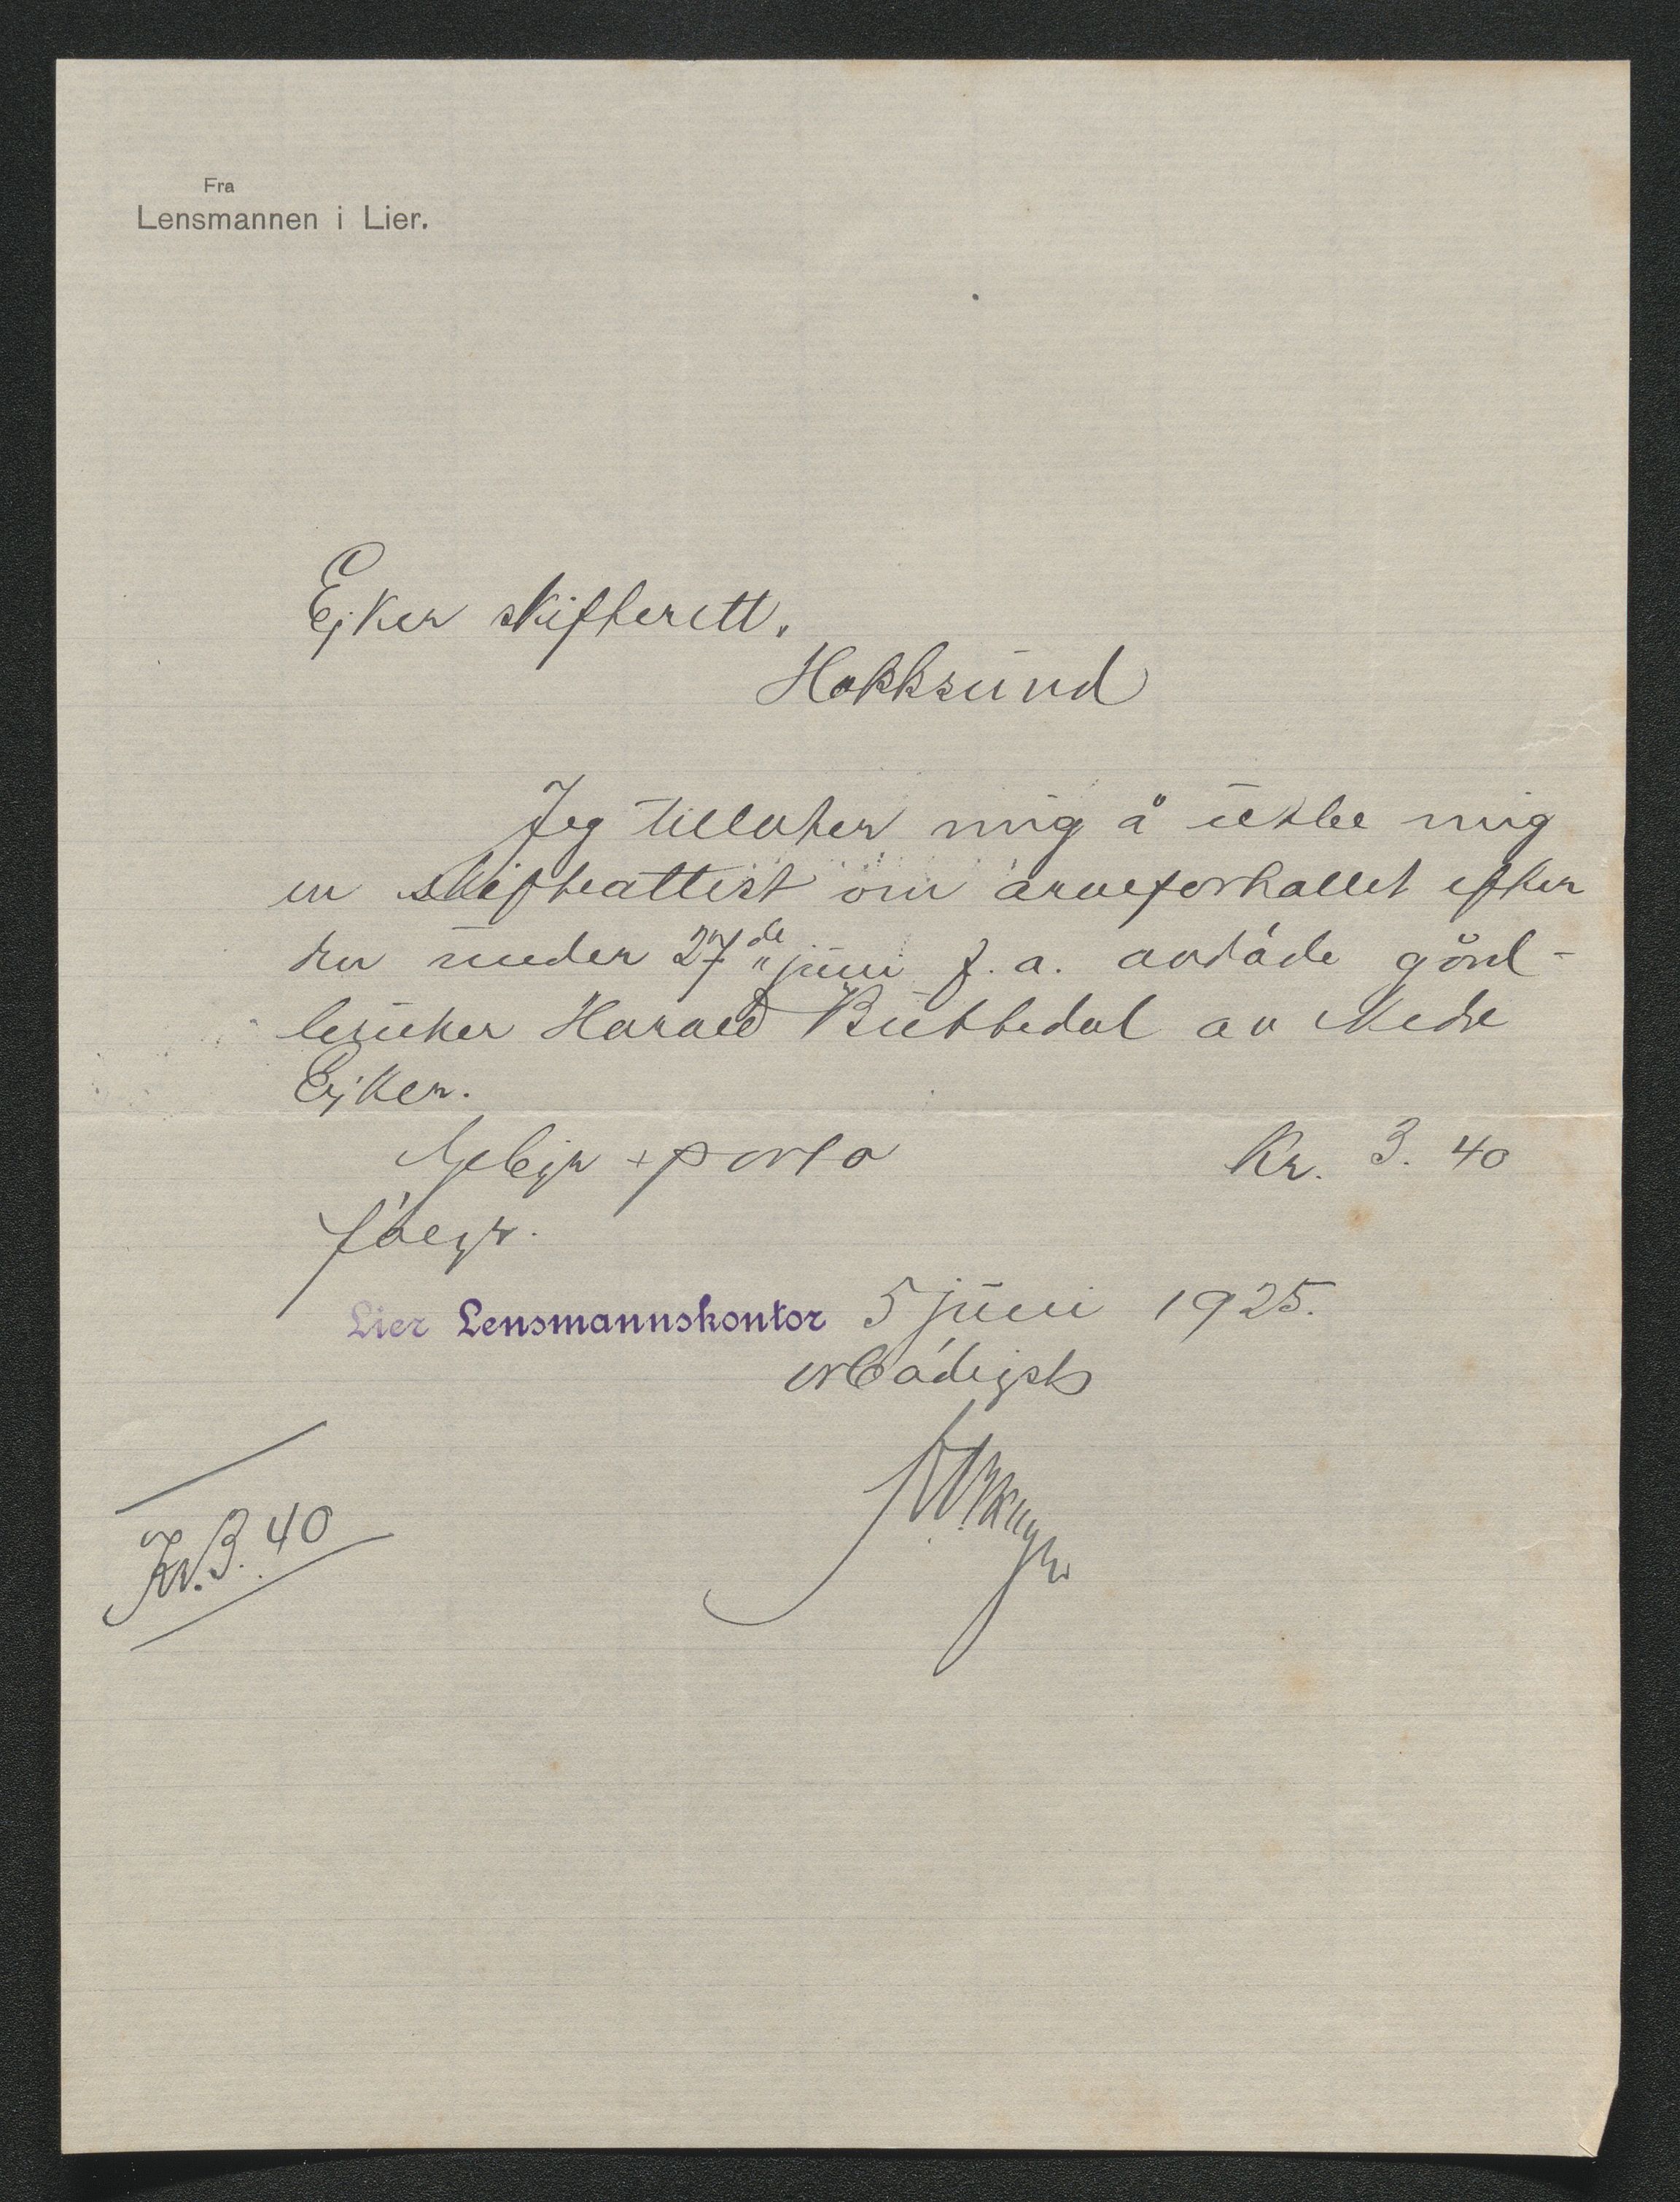 Fra
Lensmannen i Lier.
Eiker skifterett.
Hokksund
Jeg tillater mig å utbe mig
en skifteattest om arveforhallet efter
den under 27de juni f. a. avdøde gård-
bruker Harald Buttedal av Nedre
Eiker.
Gebyr + porto Kr. 3.40
følger.
Lier Lensmannskontor 5 juni 1925.
erbødigst
Kr. 3.40